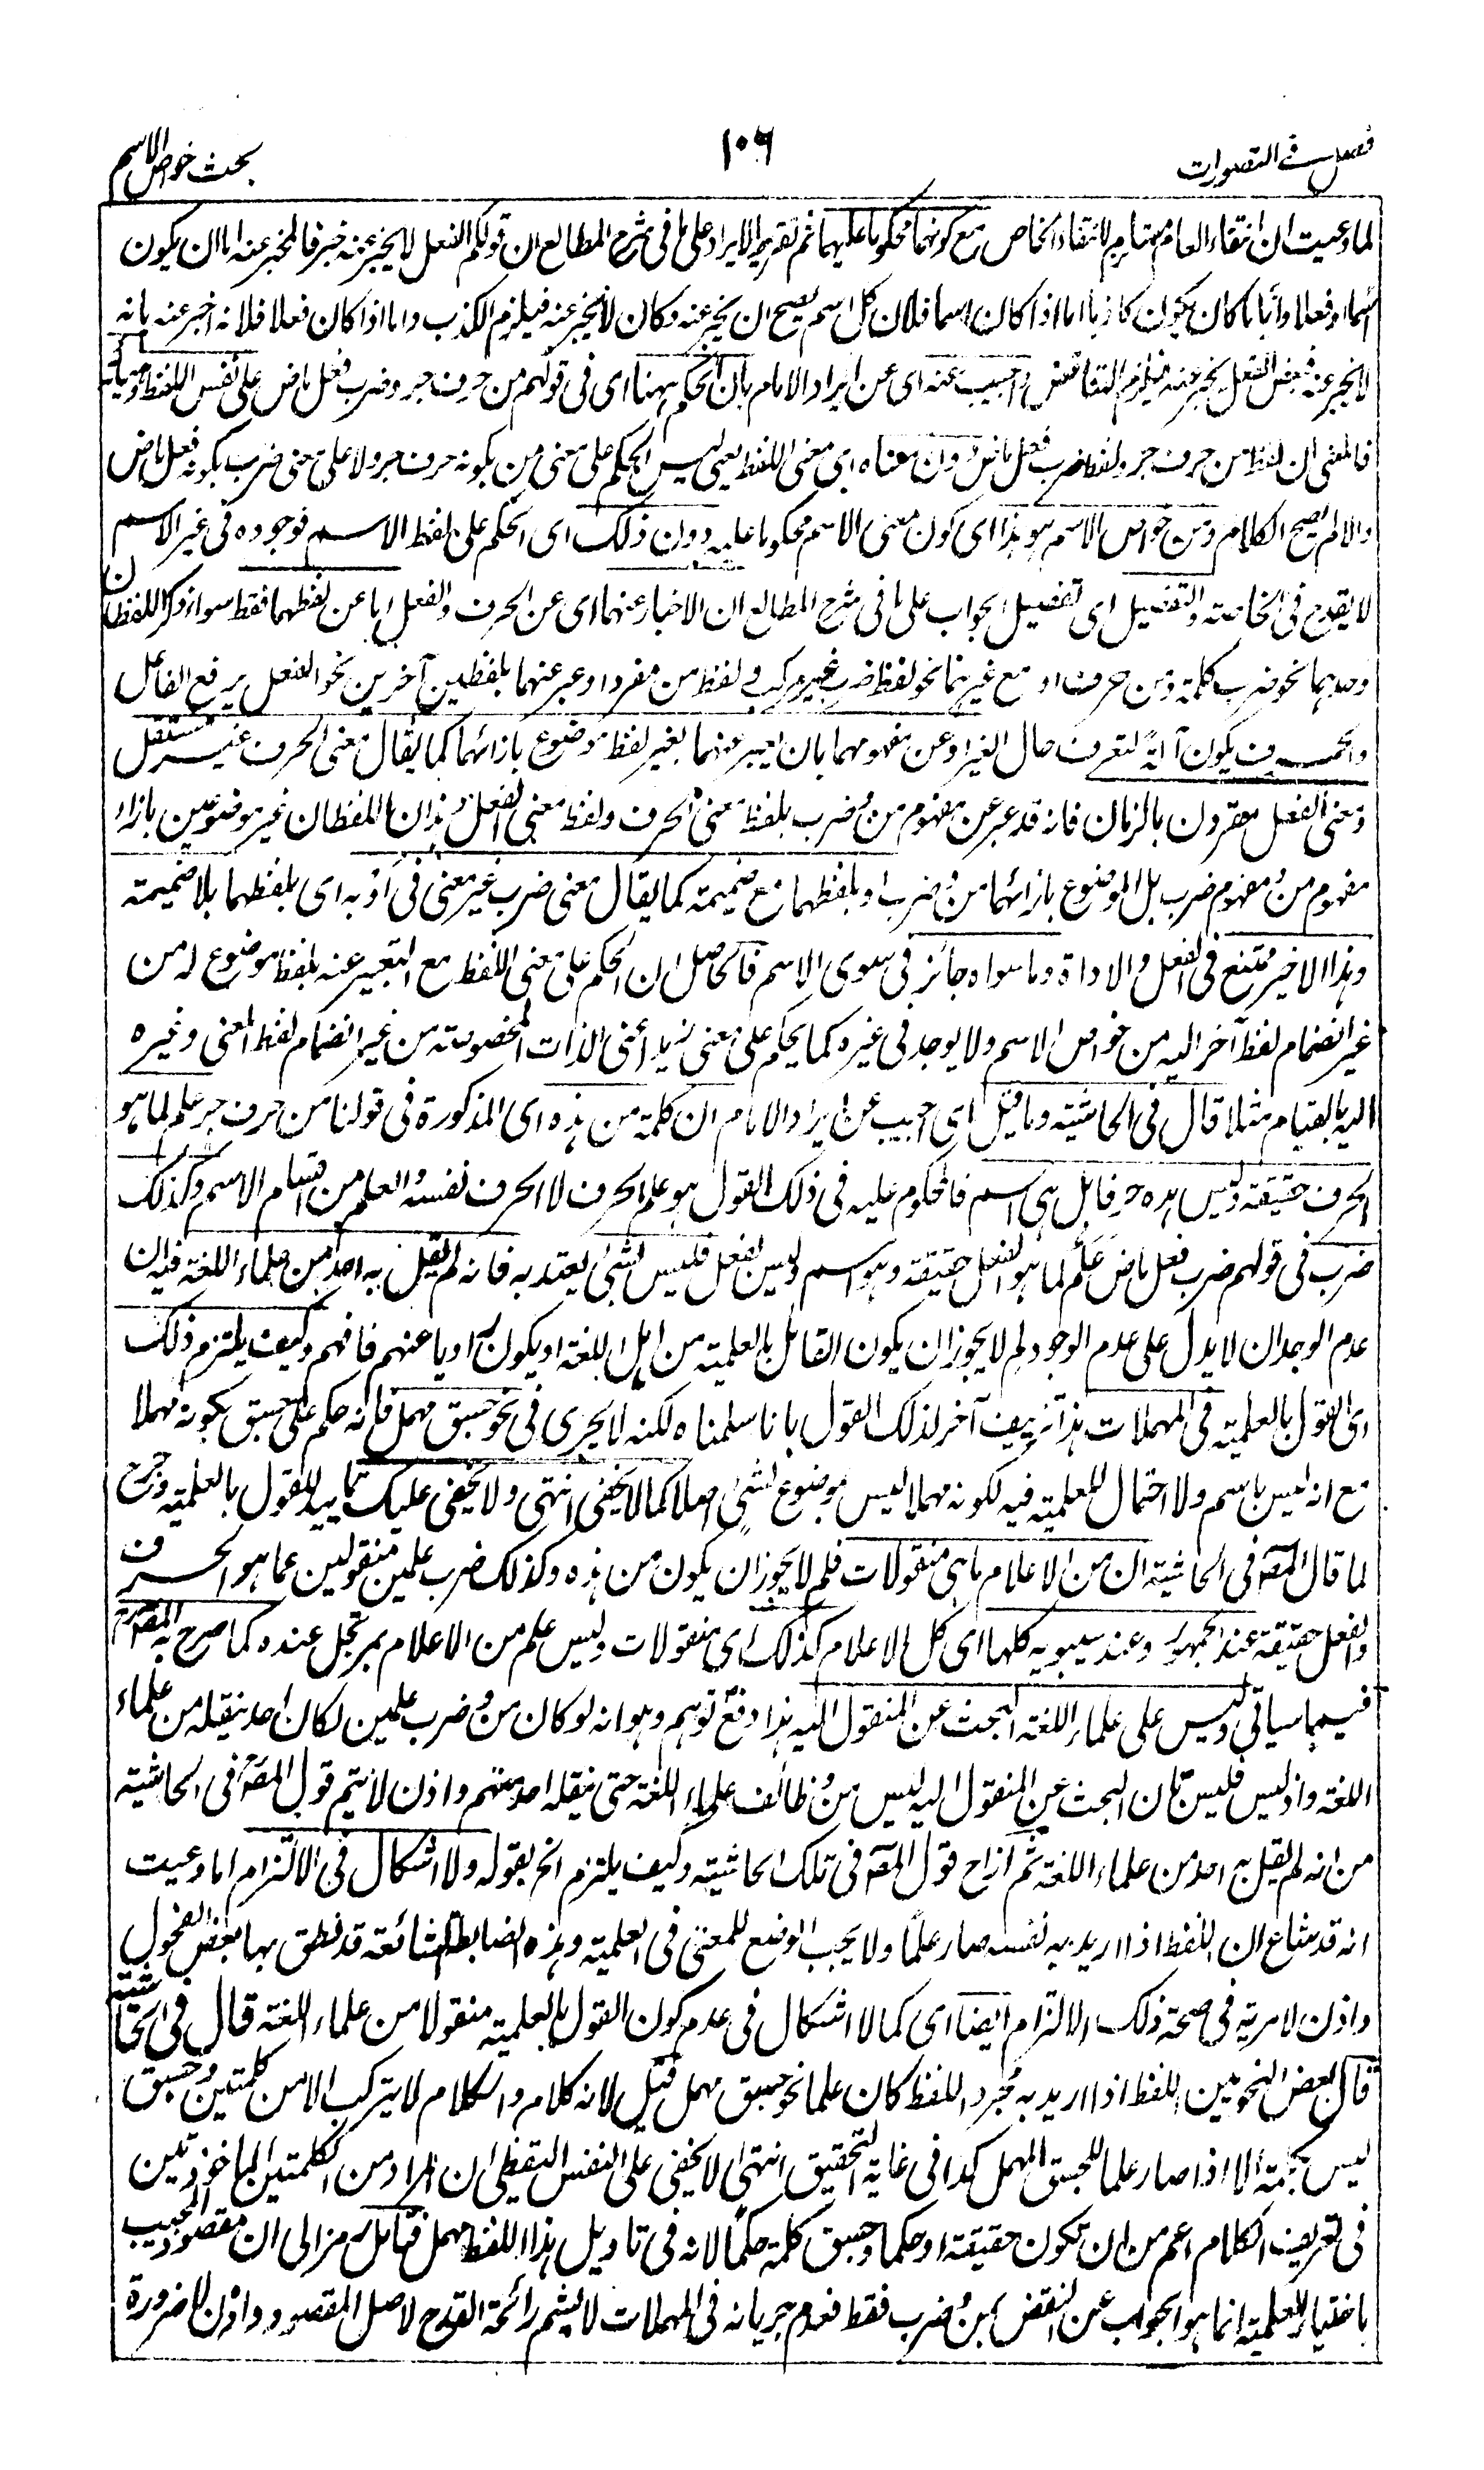 فصل في التصورات
١٠٦
بحث خواص الاسم
لما وعيت ان انتفاء العام مستلزم لانتفاء الخاص مع كونهما محكوما عليهما ثم تقرير الايراد على ما في شرح المطالع ان قولكم الفعل لا يخبر عنه خبر فالمخبر عنه اما ان يكون
اسما او فعلا وأيا ما كان يكون كاذبا اما اذا كان اسما فلان كل اسم يصح ان يخبر عنه وكان لا يخبر عنه فيلزم الكذب واما اذا كان فعلا فلانه اخبر عنه بانه
لا يخبر عنه فبعض الفعل يخبر عنه فيلزم التناقض واجيب عنه اى عن ايراد الامام بان الحكم ههنا اى فى قولهم من حرف جر وضرب فعل ماض على نفس اللفظ
فالمعنى ان لفظ من حرف جر ولفظ ضرب فعل ماض دون معناه اى معنى اللفظ يعنى ليس الحكم على معنى من بكونه حرف جر ولا على معنى ضرب بكونه فعل ماض
والا لم يصح الكلام ومن خواص الاسم هو هذا اى كون معنى الاسم محكوما عليه دون ذلك اى الحكم على لفظ الاسم فوجوده فى غير الاسم
لا يقدح فى الخاصة والتفصيل اى تفصيل الجواب على ما فى شرح المطالع ان الاخبار عنهما اى عن الحرف والفعل اما عن لفظهما فقط سواء ذكر اللفظان
وحدهما نحو ضرب كلمة ومن حرف او مع غيرهما نحو لفظ ضرب غير مركب ولفظ من مفرد او عبر عنهما بلفظين آخرين نحو الفعل يرفع الفاعل
والحرف يكون آلة لتعرف حال الغير او عن مفهومهما بان يعبر عنهما بغير لفظ موضوع بازائهما كما يقال معنى الحرف غير مستقل
ومعنى الفعل مقرون بالزمان فانه قد عبر عن مفهوم من وضرب بلفظ معنى الحرف ولفظ معنى الفعل وهذان اللفظان غير موضوعين بازاء
مفهوم من ومفهوم ضرب بل الموضوع بازائهما من وضرب او بلفظهما مع ضميمة كما يقال معنى ضرب غير معنى فى أو به اى بلفظهما بلا ضميمة
وهذا الاخير ممتنع فى الفعل والاداة وما سواه جائز فى سوى الاسم فالحاصل ان الحكم على معنى اللفظ مع التعبير عنه بلفظ موضوع له من
غير انضمام لفظ آخر اليه من خواص الاسم ولا يوجد فى غيره كما يحكم على معنى زيد اعنى الذات المخصوصة من غير انضمام لفظ المعنى وغيره
اليه بالقيام مثلا قال فى الحاشية وما قيل اى اجيب عن ايراد الامام ان كلمة من هذه اى المذكورة فى قولنا من حرف جر علم لما هو
الحرف حقيقة وليس هذه حرفا بل هى اسم فالمحكوم عليه فى ذلك القول هو علم الحرف لا الحرف نفسه والعلم من اقسام الاسم وكذلك
ضرب فى قولهم ضرب فعل ماض علم لما هو الفعل حقيقة وهو اسم وليس بفعل فليس بشئ يعتد به فانه لم يقل به احد من علماء اللغة فيه ان
عدم الوجدان لا يدل على عدم الوجود لم لا يجوز ان يكون القائل بالعلمية من اهل اللغة او يكون راويا عنهم فافهم وكيف يلتزم ذلك
اى القول بالعلمية فى المهملات هذا تزييف آخر لذلك القول بانا سلمناه لكنه لا يجرى فى نحو جسق مهمل فانه حكم على جسق بكونه مهملا
مع انه ليس باسم ولا احتمال للعلمية فيه لكونه مهملا ليس بموضوع لشئ اصلا كما لا يخفى انتهى ولا يخفى عليك تاييد للقول بالعلمية وجرح
لما قال المصـ فى الحاشية ان من الاعلام ما هى منقولات فلم لا يجوز ان يكون من هذه وكذلك ضرب علمين منقولين عما هو الحرف
والفعل حقيقة عند الجمهور وعند سيبويه كلها اى كل الاعلام كذلك اى منقولات وليس علم من الاعلام بمرتجل عنده كما صرح به المصـ
فيما سياتى وليس على علماء اللغة البحث عن المنقول اليه هذا دفع توهم وهو انه لو كان من وضرب علمين لكان احد ينقله من علماء
اللغة واذ ليس فليس بان البحث عن المنقول اليه ليس من وظائف علماء اللغة حتى ينقله احد منهم واذن لا يتم قول المصـ فى الحاشية
من انه لم يقل به احد من علماء اللغة ثم ازاح قول المصـ فى تلك الحاشية وكيف يلتزم الخ بقوله ولا اشكال فى الالتزام اما وعيت
انه قد شاع ان اللفظ اذا اريد به نفسه صار علما ولا يجب الوضع للمعنى فى العلمية وهذه الضابطة شائعة قد نطق بها بعض الفحول
واذن لا مرية فى صحة ذلك الالتزام ايضا اى كما لا اشكال فى عدم كون القول بالعلمية منقولا من علماء اللغة قال فى الحاشية
قال بعض النحويين اللفظ اذا اريد به مجرد اللفظ كان علما نحو جسق مهمل قيل لانه كلام والكلام لا يتركب الا من كلمتين وجسق
ليس بكلمة الا اذا صار علما للجسق المهمل كذا فى غاية التحقيق انتهى لا يخفى على النفس اليقظى ان المراد من الكلمتين الماخوذتين
فى تعريف الكلام اعم من ان تكون حقيقة او حكما وجسق كلمة حكما لانه فى تاويل هذا اللفظ مهمل فتامل رمز الى ان مقصود المجيب
باختيار العلمية انما هو الجواب عن النقض بمن وضرب فقط فعدم جريانه فى المهملات لا يشم رائحة القدح لاصل المقصود واذن لا ضرورة